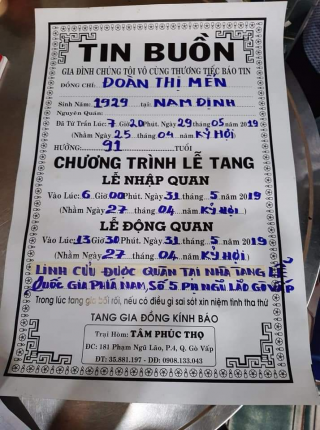 TIN BUỒN
GIA ĐÌNH CHÚNG TÔI VÔ CÙNG THƯƠNG TIẾC BÁO TIN
ĐỒNG CHÍ: ĐOÀN THỊ MEN
Sinh Năm: 1929 tại: NAM ĐỊNH
Nguyên Quán:
Đã Từ Trần Lúc: 7 Giờ 20 Phút. Ngày 29 tháng 05 năm 2019
(Nhằm Ngày 25 tháng 04 năm KỶ HỢI)
HƯỞNG: 91 TUỔI
CHƯƠNG TRÌNH LỄ TANG
LỄ NHẬP QUAN
Vào Lúc: 6 Giờ 00 Phút. Ngày 31 tháng 5 năm 2019
(Nhằm Ngày 27 tháng 04 năm KỶ HỢI)
LỄ ĐỘNG QUAN
Vào Lúc: 13 Giờ 30 Phút. Ngày 31 tháng 5 năm 2019
(Nhằm Ngày 27 tháng 04 năm KỶ HỢI)
LINH CỬU ĐƯỢC QUÀN TẠI NHÀ TANG LỄ
QUỐC GIA PHÍA NAM, SỐ 5 PHẠM NGŨ LÃO GÒ VẤP
Trong lúc tang gia bối rối, nếu có điều gì sai sót xin niệm tình tha thứ
TANG GIA ĐỒNG KÍNH BÁO
Trại Hòm: TÂM PHÚC THỌ
ĐC: 181 Phạm Ngũ Lão, P.4, Q. Gò Vấp
ĐT: 35.881.197 - DĐ: 0908.133.043